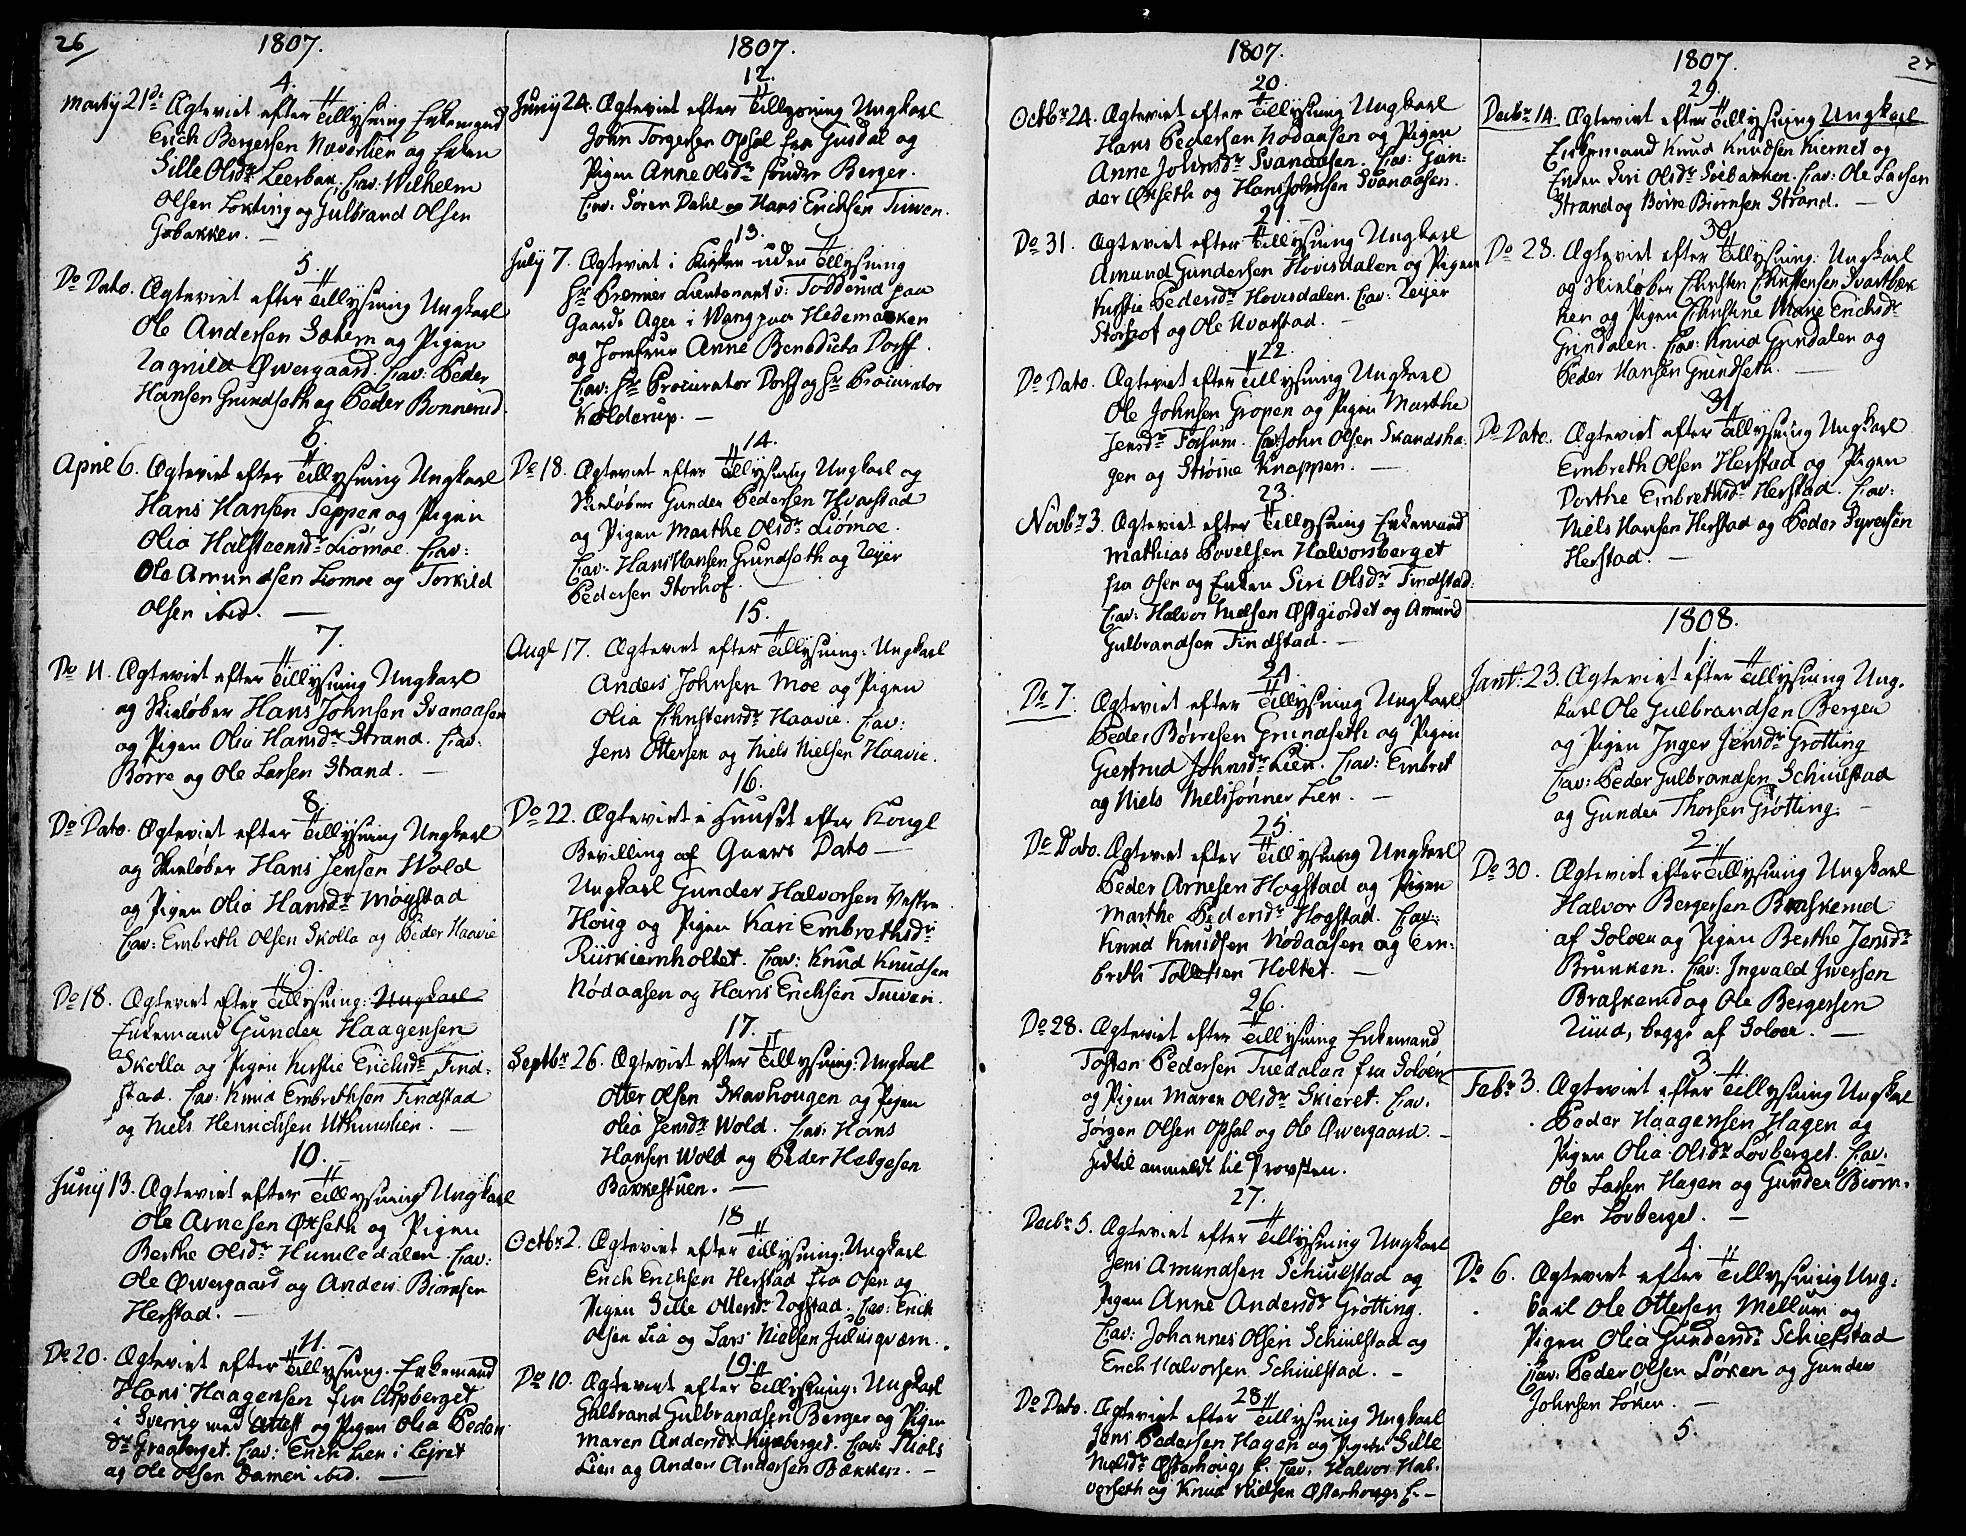 26
1807.
4.
Martij 21de Ægteviet efter Tillysning Enkemand
Erich Bergersen Næverlien og Enken
Sille Olsdr Leerbak. Cav: Wilhelm
Olsen Løkting og Gulbrand Olsen
Gobakken. —
5.
Do Dato. Ægteviet efter Tillysning Ungkarl
Ole Andersen Sætern og Pigen
Ragnild Øwergaard. Cav: Peder
Hansen Grundseth og Peder Bonnerud.
6.
April 6. Ægteviet efter Tillysning Ungkarl
Hans Hansen Teppen og Pigen
Olia Halsteensdr Liømoe. Cav:
Ole Amundsen Liømoe og Torkild
Olsen ibid. —
7.
Do 11. Ægteviet efter Tillysning Ungkarl
og Skieløber Hans Johnsen Svanaasen
og Pigen Olia Hansdr Strand. Cav:
Børre og Ole Larsen Strand. —
8.
Do Dato. Ægteviet efter Tillysning Ungkarl
og Skieløber Hans Jensen Wold
og Pigen Olia Hansdr Møystad
Cav: Embreth Olsen Skolla og Peder Haavie
9.
Do 18. Ægteviet efter Tillysning: Ungkarl
Enkemand Gunder Haagensen
Skolla og Pigen Kirstie Erichsdr Find-
stad. Cav: Knud Embrethsen Findstad
og Niels Henrichsen Uthuuslien. —
10.
Juny 13. Ægteviet efter Tillysning Ungkarl
Ole Arnesen Øxseth og Pigen
Berthe Olsdr Humledalen. Cav:
Ole Øwergaard og Anders Biørnsen
Herstad. —
11.
Do 20. Ægteviet efter Tillysning. Enkemand
Hans Haagensen fra Aspberget
i Sverrig med Attest og Pigen Olia Peders
dr Graaberget. Cav: Erich Lien i Lejret
og Ole Olsen Damen ibid. —
1807.
12.
Juny 24. Ægteviet efter Tillysning Ungkarl
John Torgersen Opsal fra Gusdal og
Pigen Anne Olsdr Søndre Berger.
Cav: Søren Dahl og Hans Erichsen Tuwen.
13.
July 7. Ægteviet i Kirken uden Tillysning
Hr Premier Lieutenant v: Todderud paa
Gaarde Ager i Wang paa Hedemarken
og Jomfrue Anne Benedicta Dorff.
Cav: Hr Procurator Dorff og Hr Procurator
Kolderup. —
14.
Do 18. Ægteviet efter Tillysning Ungkarl og
Skieløber Gunder Pedersen Hvarstad
og Pigen Marthe Olsdr Liømoe.
Cav: Hans Hansen Grundseth og Rejer
Pedersen Storhof.
15.
Augl 17. Ægteviet efter Tillysning: Ungkarl
Anders Johnsen Moe og Pigen
Olia Christensdr Haavie. Cav:
Jens Ottersen og Niels Nielsen Haavie.
16.
Do 22. Ægteviet i Huuset efter Kongl
Bevilling af Dato —
Ungkarl Gunder Halvorsen Vestre
Houg og Pigen Kari Embrethsdr
Riiskiernholtet. Cav: Knud Knudsen
Nødaasen og Hans Erichsen Tuwen.
17.
Septbr 26. Ægteviet efter Tillysning: Ungkarl
Otter Olsen Skavhougen og Pigen
Olia Jensdr Wold. Cav: Hans
Hansen Wold og Peder Helgesen
Bakkestuen. —
18
Octbr 2. Ægteviet efter Tillysning: Ungkarl
Erich Erichsen Herstad fra Osen og
Pigen Sille Ottersdr Rogstad. Cav: Erich
Olsen Lia og Lars Nielsen Julusqværn.
19.
Do 10. Ægteviet efter Tillysning: Ungkarl
Gulbrand Gulbrandsen Berger og Pigen
Maren Andersdr Cav: Niels
Lien og Anders Andersen Bækken. —
1807.
20.
Octbr 24. Ægteviet efter Tillysning Ungkarl
Hans Pedersen Nødaasen og Pigen
Anne Johnsdr Svanaasen. Cav: Gun-
der Øxseth og Hans Johnsen Svanaasen.
21.
Do 31. Ægteviet efter Tillysning Ungkarl
Amund Gundersen Hovisdalen og Pigen
Kirstie Pedersdr Hovisdalen. Cav: Rejer
Storhof og Ole Kvarstad. —
22.
Do Dato. Ægteviet efter Tillysning Ungkarl
Ole Johnsen Gropen og Pigen Marthe
Jensdr Fossum. Cav: John Olsen Skandsha-
gen og Strøme Knappen. —
23.
Novbr 3. Ægteviet efter Tillysning Enkemand
Mathias Povelsen Halvorsberget
fra Osen og Enken Siri Olsdr Findstad
Cav: Halvor Nielsen Østgiordet og Amund
Gulbrandsen Findstad. —
24.
Do 7. Ægteviet efter Tillysning Ungkarl
Peder Børresen Grundseth og Pigen
Giertrud Johnsdr Lien. Cav: Embret
og Niels Nielssønner Lien. —
25.
Do Dato. Ægteviet efter Tillysning Ungkarl
Peder Arnesen Hogstad og Pigen
Marthe Pedersdr Hogstad. Cav:
Knud Knudsen Nødaasen og Em-
breth Tollefsen Holtet. —
26.
Do 28. Ægteviet efter Tillysning Enkemand
Tosten Pedersen Tuedalen fra Soløen
og Pigen Maren Olsdr Skieret. Cav:
Jørgen Olsen Opsal og Ole Øwergaard. —
Hertil anmeldt til Provsten.
27.
Decbr 5. Ægteviet efter Tillysning Ungkarl
Jens Amundsen Schiulstad og
Pigen Anne Andersdr Grøtting.
Cav: Johannes Olsen Schiulstad og
Erich Halvorsen Schiulstad. —
28.
Do Dato. Ægteviet efter Tillysning Ungkarl
Jens Pedersen Hagen og Pigen Sille
Nielsdr Østerhougs E. Cav: Halvor Hal-
vorseth og Knud Nielsen Østerhougs E. —
1807.
27
29.
Decbr 14. Ægteviet efter Tillysning Ungkarl
Enkemand Knud Knudsen Kiernet og
Enken Siri Olsdr Siebakken. Cav: Ole Larsen
Strand og Børre Biørnsen Strand. —
30.
Do 28. Ægteviet efter Tillysning: Ungkarl
og Skieløber Christen Christensen Svartbæk
ken og Pigen Christine Marie Erichsdr
Grindalen. Cav: Knud Grindalen og
Peder Hansen Grundseth. —
31.
Do Dato. Ægteviet efter Tillysning Ungkarl
Embreth Olsen Herstad og Pigen
Dorthe Embrethsdr Herstad. Cav:
Niels Hansen Herstad og Peder Syversen
Herstad. —
1808.
1.
Janr: 23. Ægteviet efter Tillysning Ung-
karl Ole Gulbrandsen Bergen
og Pigen Inger Jensdr Grøtting
Cav: Peder Gulbrandsen Schiulstad
og Gunder Thorsen Grøtting. —
2.
Do 30. Ægteviet efter Tillysning Ungkarl
Halvor Bergersen Braskerud
af Soloer og Pigen Berthe Jensdr
Brunken. Cav: Ingvald Iversen
Braskerud og Ole Bergersen
Ruud, begge af Soloer. —
3.
Febr 3. Ægteviet efter Tillysning Ungkarl
Peder Haagensen Hagen og
Pigen Olia Olsdr Løvberget. Cav:
Ole Larsen Hagen og Gunder Biørn-
sen Løvberget. —
4.
Do 6. Ægteviet efter Tillysning Ung-
karl Ole Ottersen Mellum og
Pigen Olia Gundersdr Schiefstad
Cav: Peder Olsen Løken og Gunder
Johnsen Løken. —
5.